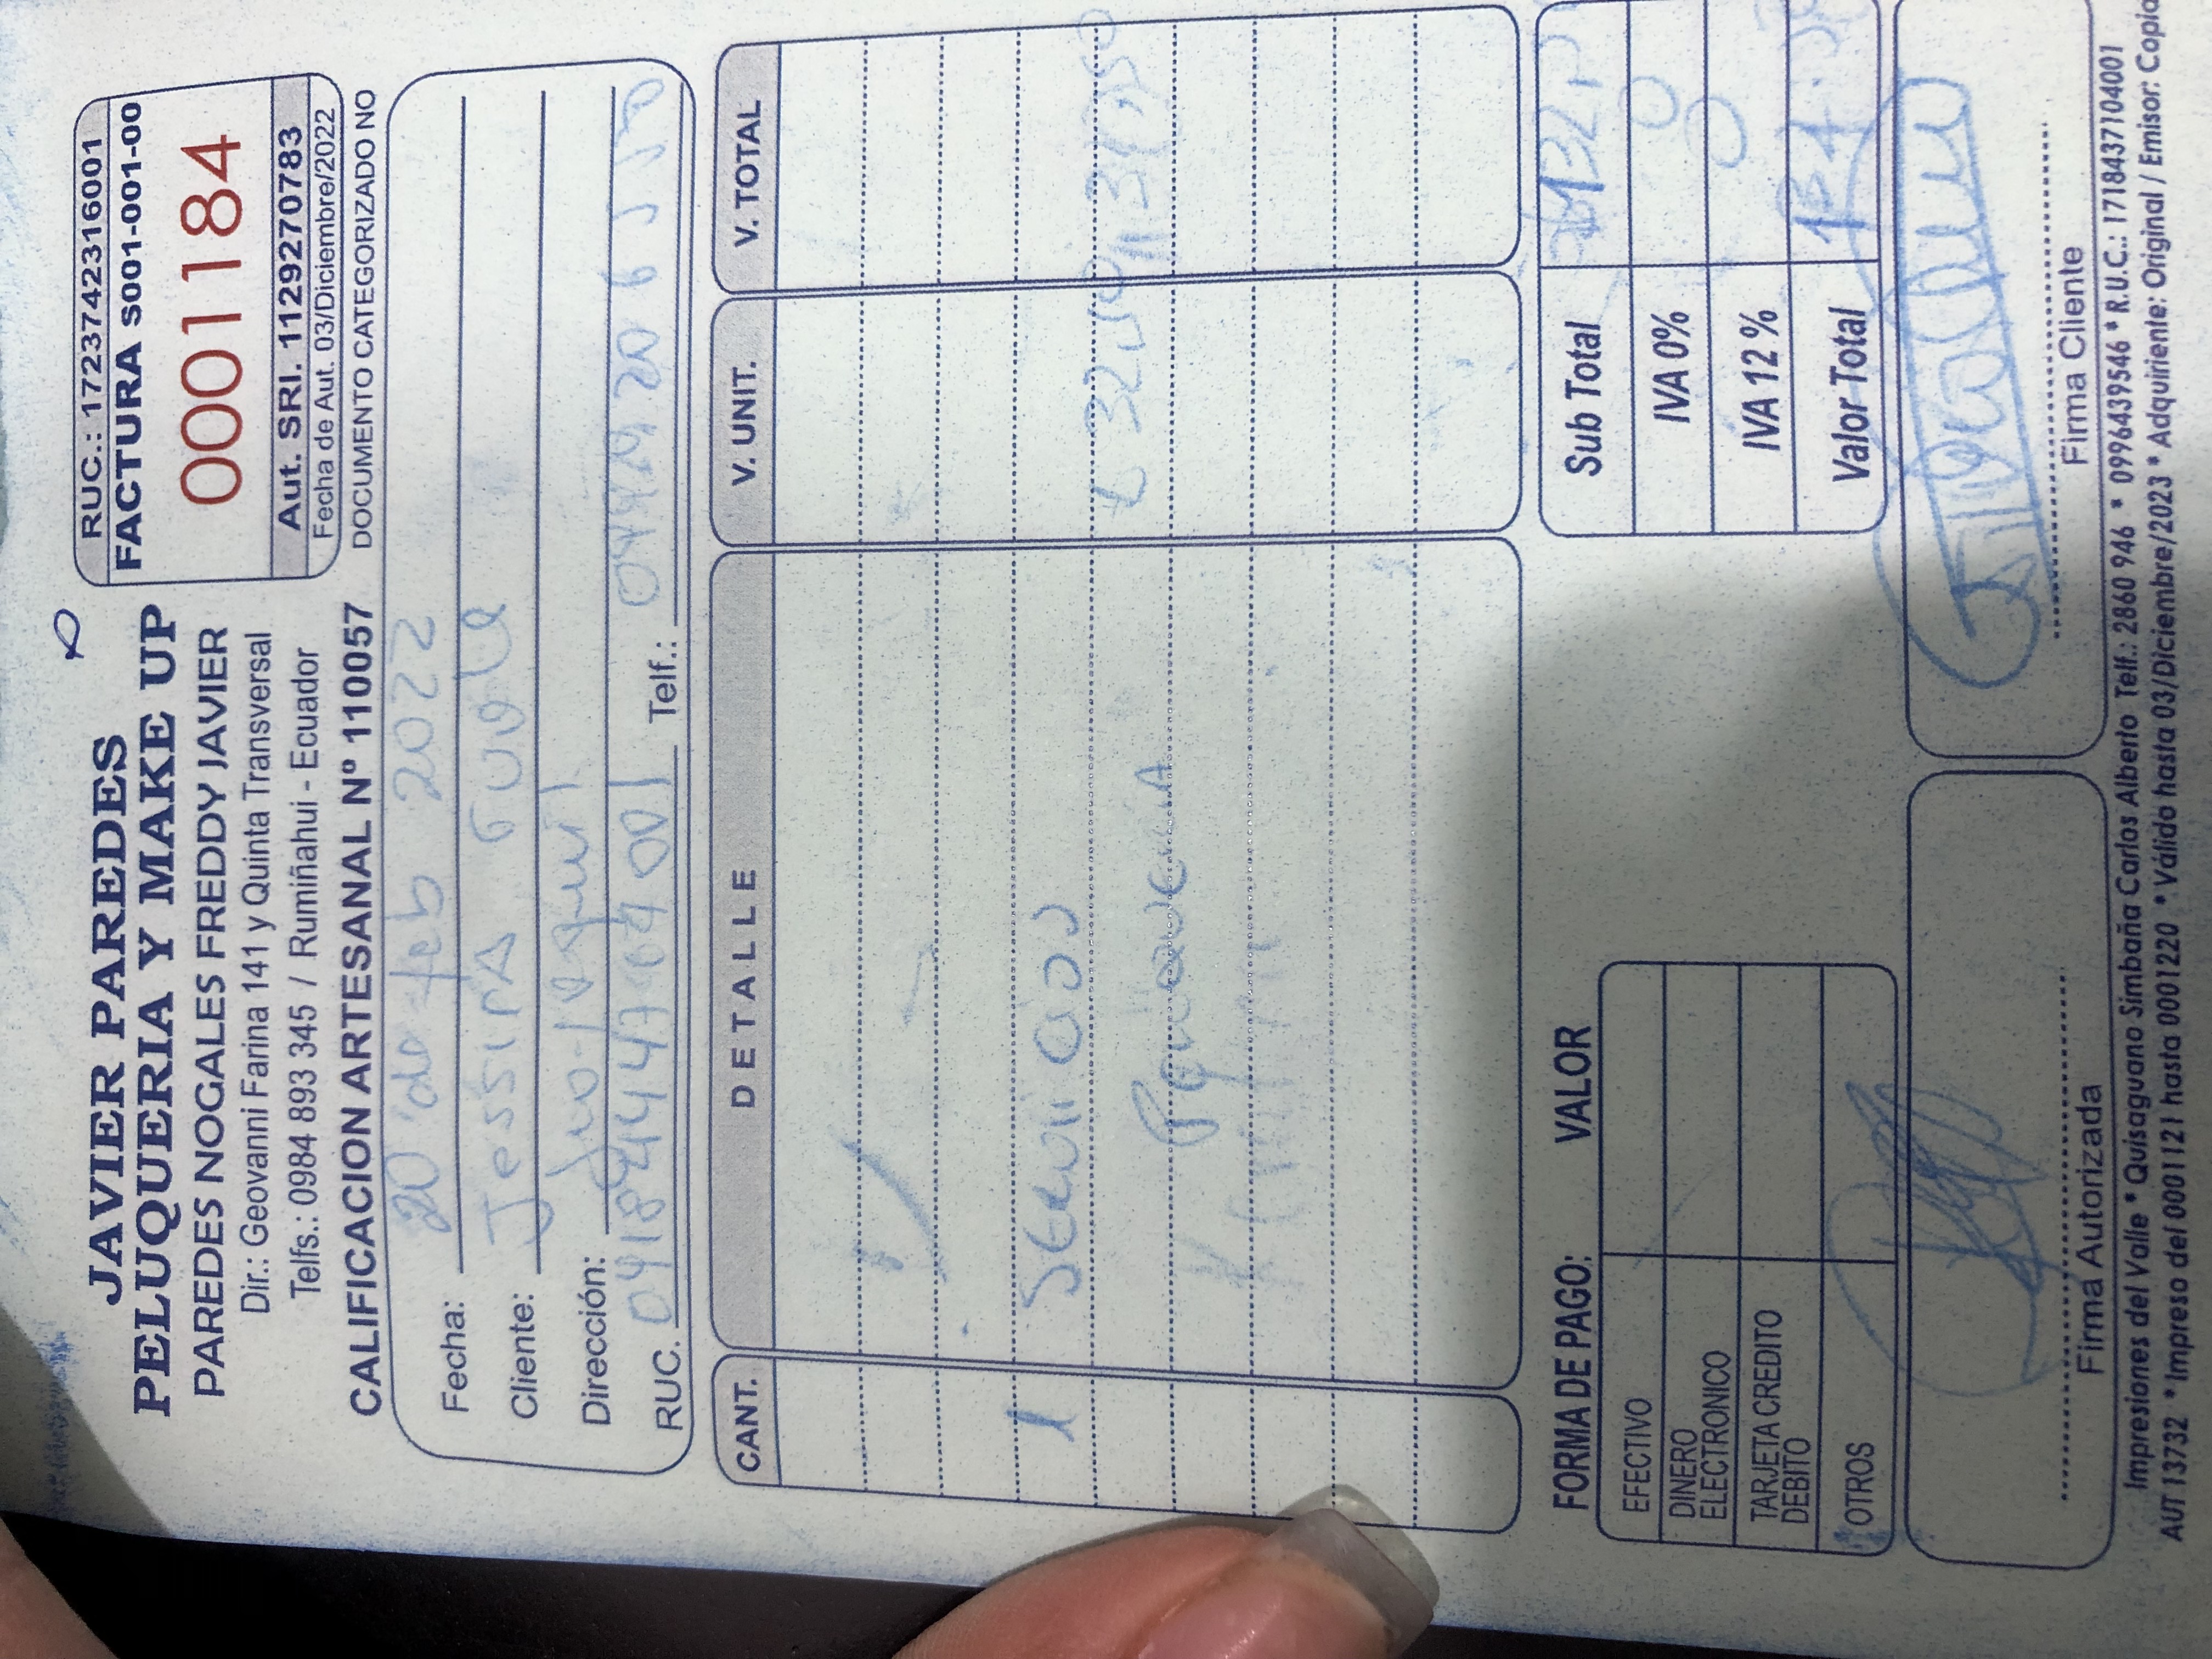 JAVIER PAREDES
PELUQUERIA Y MAKE UP
PAREDES NOGALES FREDDY JAVIER
Dir.: Geovanni Farina 141 y Quinta Transversal
Telfs.: 0984 893 345 / Rumiñahui - Ecuador
CALIFICACION ARTESANAL Nº 110057
RUC.: 1723742316001
FACTURA S001-001-00
0001184
Aut. SRI. 1129270783
Fecha de Aut. 03/Diciembre/2022
DOCUMENTO CATEGORIZADO NO
Fecha: 20 de feb 2022
Cliente:
Dirección:
RUC. Telf.:
CANT. DETALLE V. UNIT. V. TOTAL
1 Servicios
32,50
Peluqueria
FORMA DE PAGO: VALOR
EFECTIVO
DINERO ELECTRONICO
TARJETA CREDITO DEBITO
OTROS
Sub Total
IVA 0% 0
IVA 12 % 0
Valor Total
Firma Autorizada
Firma Cliente
Impresiones del Valle * Quisaguano Simbaña Carlos Alberto Telf.: 2860 946 * 0996439546 * R.U.C.: 1718437104001
AUT 13732 * Impreso del 0001121 hasta 0001220 * Válido hasta 03/Diciembre/2023 * Adquiriente: Original / Emisor: Copia